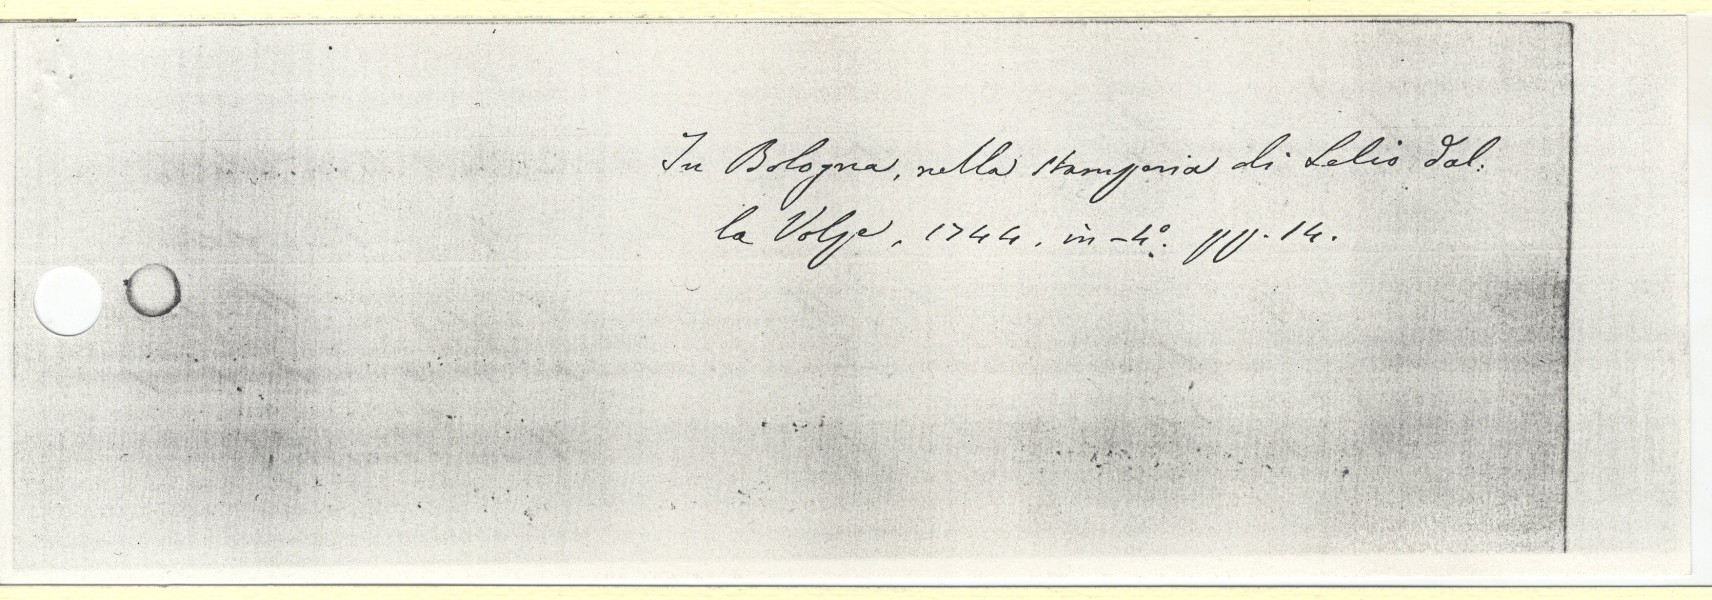 In Bologna, nella stamperia di Lelio dal:
la Volpe, 1744. in-4º. pp. 14.